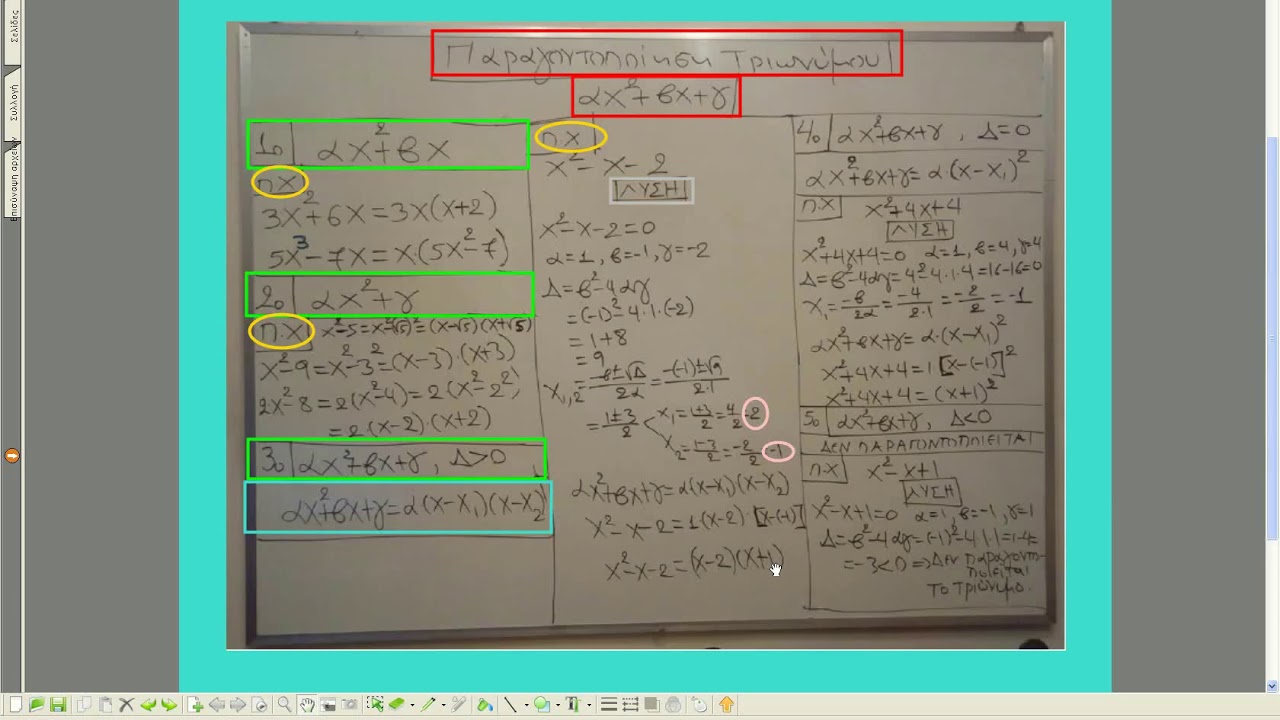 Σελίδες
Συλλογή
Επισύναψη αρχείων
Παραγοντοποίηση Τριωνύμου
αx²+βx+γ
1ο αx²+βx
π.χ
3x²+6x=3x(x+2)
5x³-7x=x·(5x²-7)
2ο αx²+γ
π.χ x²-5=x²-√5²=(x-√5)(x+√5)
x²-9=x²-3²=(x-3)·(x+3)
2x²-8=2(x²-4)=2(x²-2²)
=2(x-2)·(x+2)
3ο αx²+βx+γ, Δ>0
αx²+βx+γ=α(x-x₁)(x-x₂)
π.χ
x²-x-2
ΛΥΣΗ
x²-x-2=0
α=1, β=-1, γ=-2
Δ=β²-4αγ
=(-1)²-4·1·(-2)
=1+8
=9
x₁,₂=-β±√Δ/2α=-(-1)±√9/2·1
=1±3/2
x₁=1+3/2=4/2=2
x₂=1-3/2=-2/2=-1
αx²+βx+γ=α(x-x₁)(x-x₂)
x²-x-2=1(x-2)·[x-(-1)]
x²-x-2=(x-2)(x+1)
4ο αx²+βx+γ, Δ=0
αx²+βx+γ=α·(x-x₁)²
π.χ x²+4x+4
ΛΥΣΗ
x²+4x+4=0 α=1, β=4, γ=4
Δ=β²-4αγ=4²-4·1·4=16-16=0
x₁=-β/2α=-4/2·1=-2/2=-1
αx²+βx+γ=α·(x-x₁)²
x²+4x+4=1[x-(-1)]²
x²+4x+4=(x+1)²
5ο αx²+βx+γ, Δ<0
ΔΕΝ ΠΑΡΑΓΟΝΤΟΠΟΙΕΙΤΑΙ
π.χ x²-x+1
ΛΥΣΗ
x²-x+1=0 α=1, β=-1, γ=1
Δ=β²-4αγ=(-1)²-4·1·1=1-4=
=-3<0⇒Δεν παραγοντο-
ποιείται
το τριώνυμο.